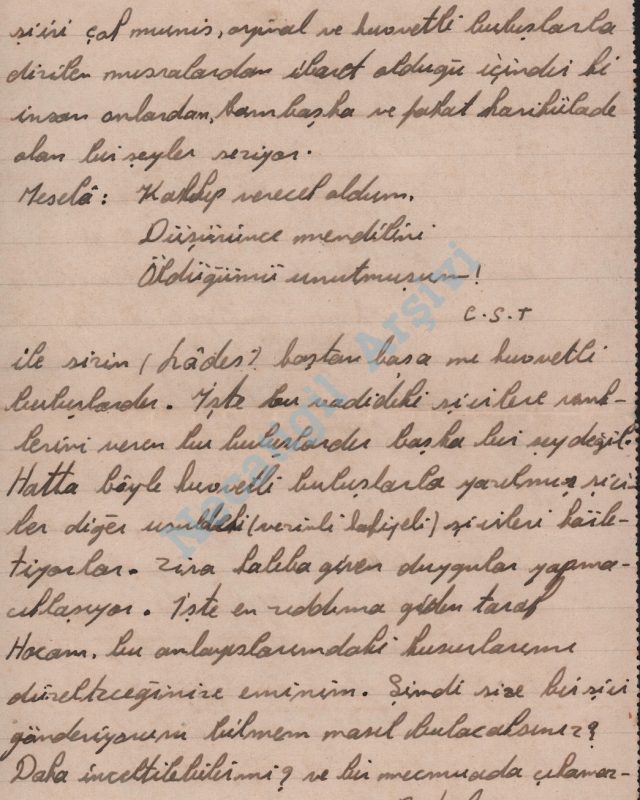 şiiri çok munis, orjinal ve kuvvetli buluşlarla
dizilen mısralardan ibaret olduğu içindir ki
insan onlardan, bambaşka ve fakat harikülade
olan bir şeyler seziyor.
Meselâ: Kalkıp verecek oldum,
Düşürünce mendilini
Öldüğümü unutmuşum!
C.S.T
ile sizin (Hâdes) baştan başa ne kuvvetli
buluşlardır. İşte bu vadideki şiirlere renk-
lerini veren bu buluşlardır başka bir şey değil.
Hatta böyle kuvvetli buluşlarla yazılmış şiir-
ler diğer usuldeki (vezinli kafiyeli) şiirleri
tiyorlar. Zira kalıba giren duygular yapma-
cıklaşıyor. İşte en zıddıma giden taraf
Hocam, bu anlayışlarımdaki kusurlarımı
düzelteceğinize eminim. Şimdi size bir şiir
gönderiyorum bilmem nasıl bulacaksınız?
Daha inceltilebilir mi? ve bir mecmuada çıkamaz-
Nazangil Arşivi